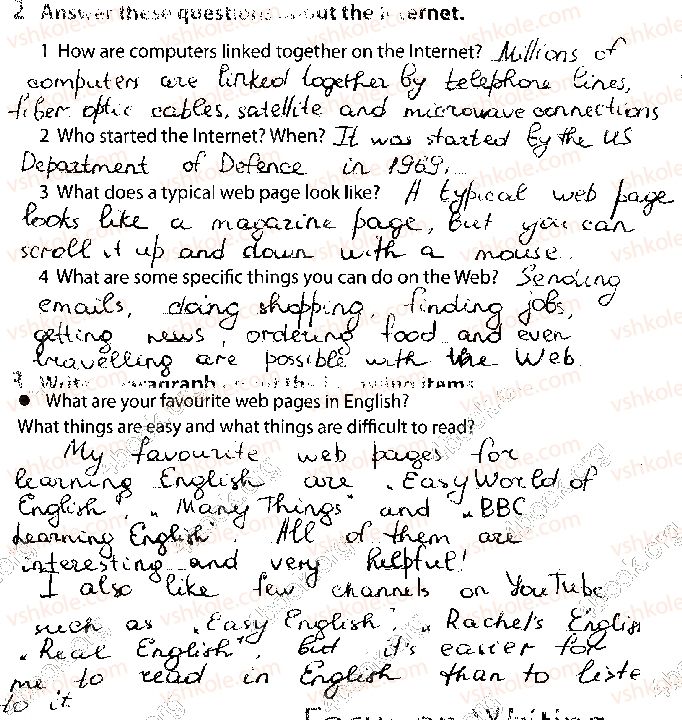 2 Answer these questions about the Internet.
1 How are computers linked together on the Internet? Millions of
computers are linked together by telephone lines,
fiber optic cables, satellite and microwave connections
2 Who started the Internet? When? It was started by the US
Department of Defence in 1969.
3 What does a typical web page look like? A typical web page
looks like a magazine page, but you can
scroll it up and down with a mouse.
4 What are some specific things you can do on the Web? Sending
emails, doing shopping, finding jobs,
getting news, ordering food and even
travelling are possible with the Web.
3 Write paragraph
● What are your favourite web pages in English?
What things are easy and what things are difficult to read?
My favourite web pages for
learning English are „Easy World of
English", „Many Things" and „BBC
Learning English". All of them are
interesting and very helpful!
I also like few channels on YouTube
such as „Easy English", „Rachel's English
„Real English", but it's easier for
me to read in English than to liste
to it